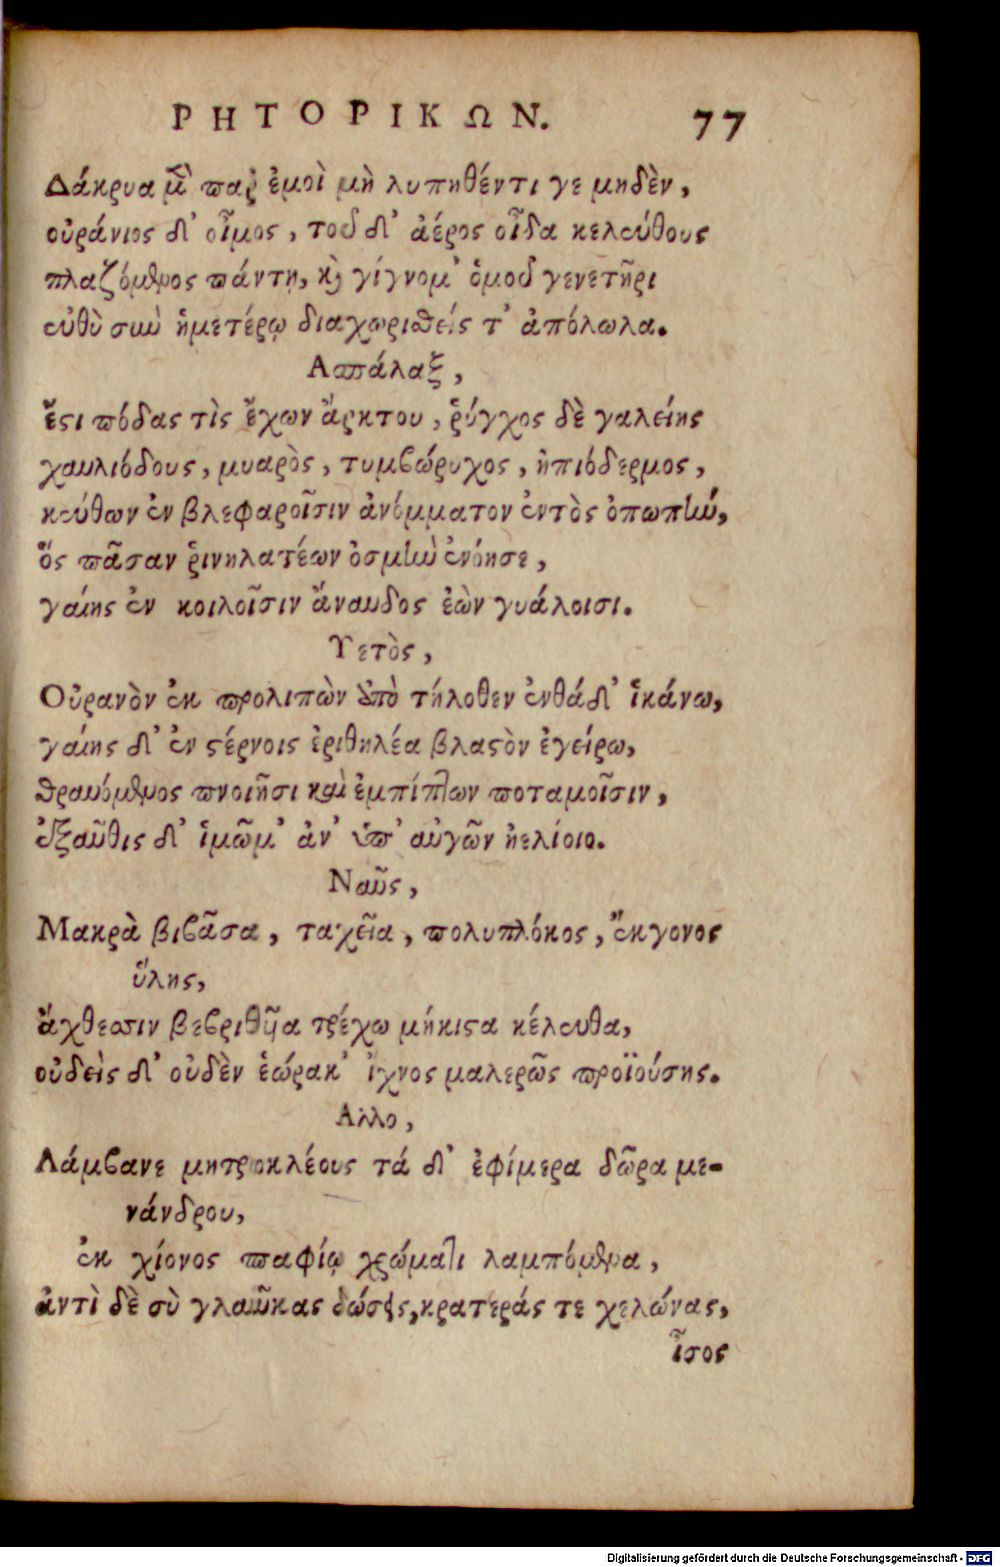 ΡΗΤΟΡΙΚΩΝ. 77
Δάκρυα μὲν παρ' ἐμοὶ μὴ λυπηθέντι γε μηδὲν,
οὐράνιος δ' οἶμος, τοῦ δ' ἀέρος οἶδα κελεύθους
πλαζόμενος πάντη, καὶ γίγνομ' ὁμοῦ γενετῆρι
εὐθὺ σὺν ἡμετέρῳ διαχωρισθείς τ' ἀπόλωλα.
Ασπάλαξ,
ἔστι πόδας τὶς ἔχων ἄρκτου, ῥύγχος δὲ γαλείης
χαυλιόδους, μυαρὸς, τυμβώρυχος, ἠπιόδερμος,
κεύθων ἐν βλεφαροῖσιν ἀνόμματον ἐντὸς ὀπωπὴν,
ὅς πᾶσαν ῥινηλατέων ὀσμὴν ἐνόησε,
γαίης ἐν κοιλοῖσιν ἄναυδος ἐὼν γυάλοισι.
Υετὸς,
Οὐρανὸν ἐκ προλιπὼν ἀπὸ τήλοθεν ἐνθάδ' ἱκάνω,
γαίης δ' ἐν στέρνοις ἐριθηλέα βλαστὸν ἐγείρω,
θραυόμενος πνοιῇσι καὶ ἐμπίπτων ποταμοῖσιν,
ἐξαῦθις δ' ἱμῶμ' ἀν' ὑπ' αὐγῶν ἠελίοιο.
Ναῦς,
Μακρὰ βιβᾶσα, ταχεῖα, πολυπλόκος, ἔκγονος
ὕλης,
ἄχθεσιν βεβριθῆα τρέχω μήκιστα κέλευθα,
οὐδεὶς δ' οὐδὲν ἑώρακ' ἴχνος μαλερῶς προϊούσης.
Αλλο,
Λάμβανε μητροκλέους τά δ' ἐφίμερα δῶρα με-
νάνδρου,
ἐκ χίονος παφίῳ χρώματι λαμπόμενα,
ἀντὶ δὲ σὺ γλαῦκας δώσεις, κρατεράς τε χελώνας,
ἶσος
Digitalisierung gefördert durch die Deutsche Forschungsgemeinschaft - DFG